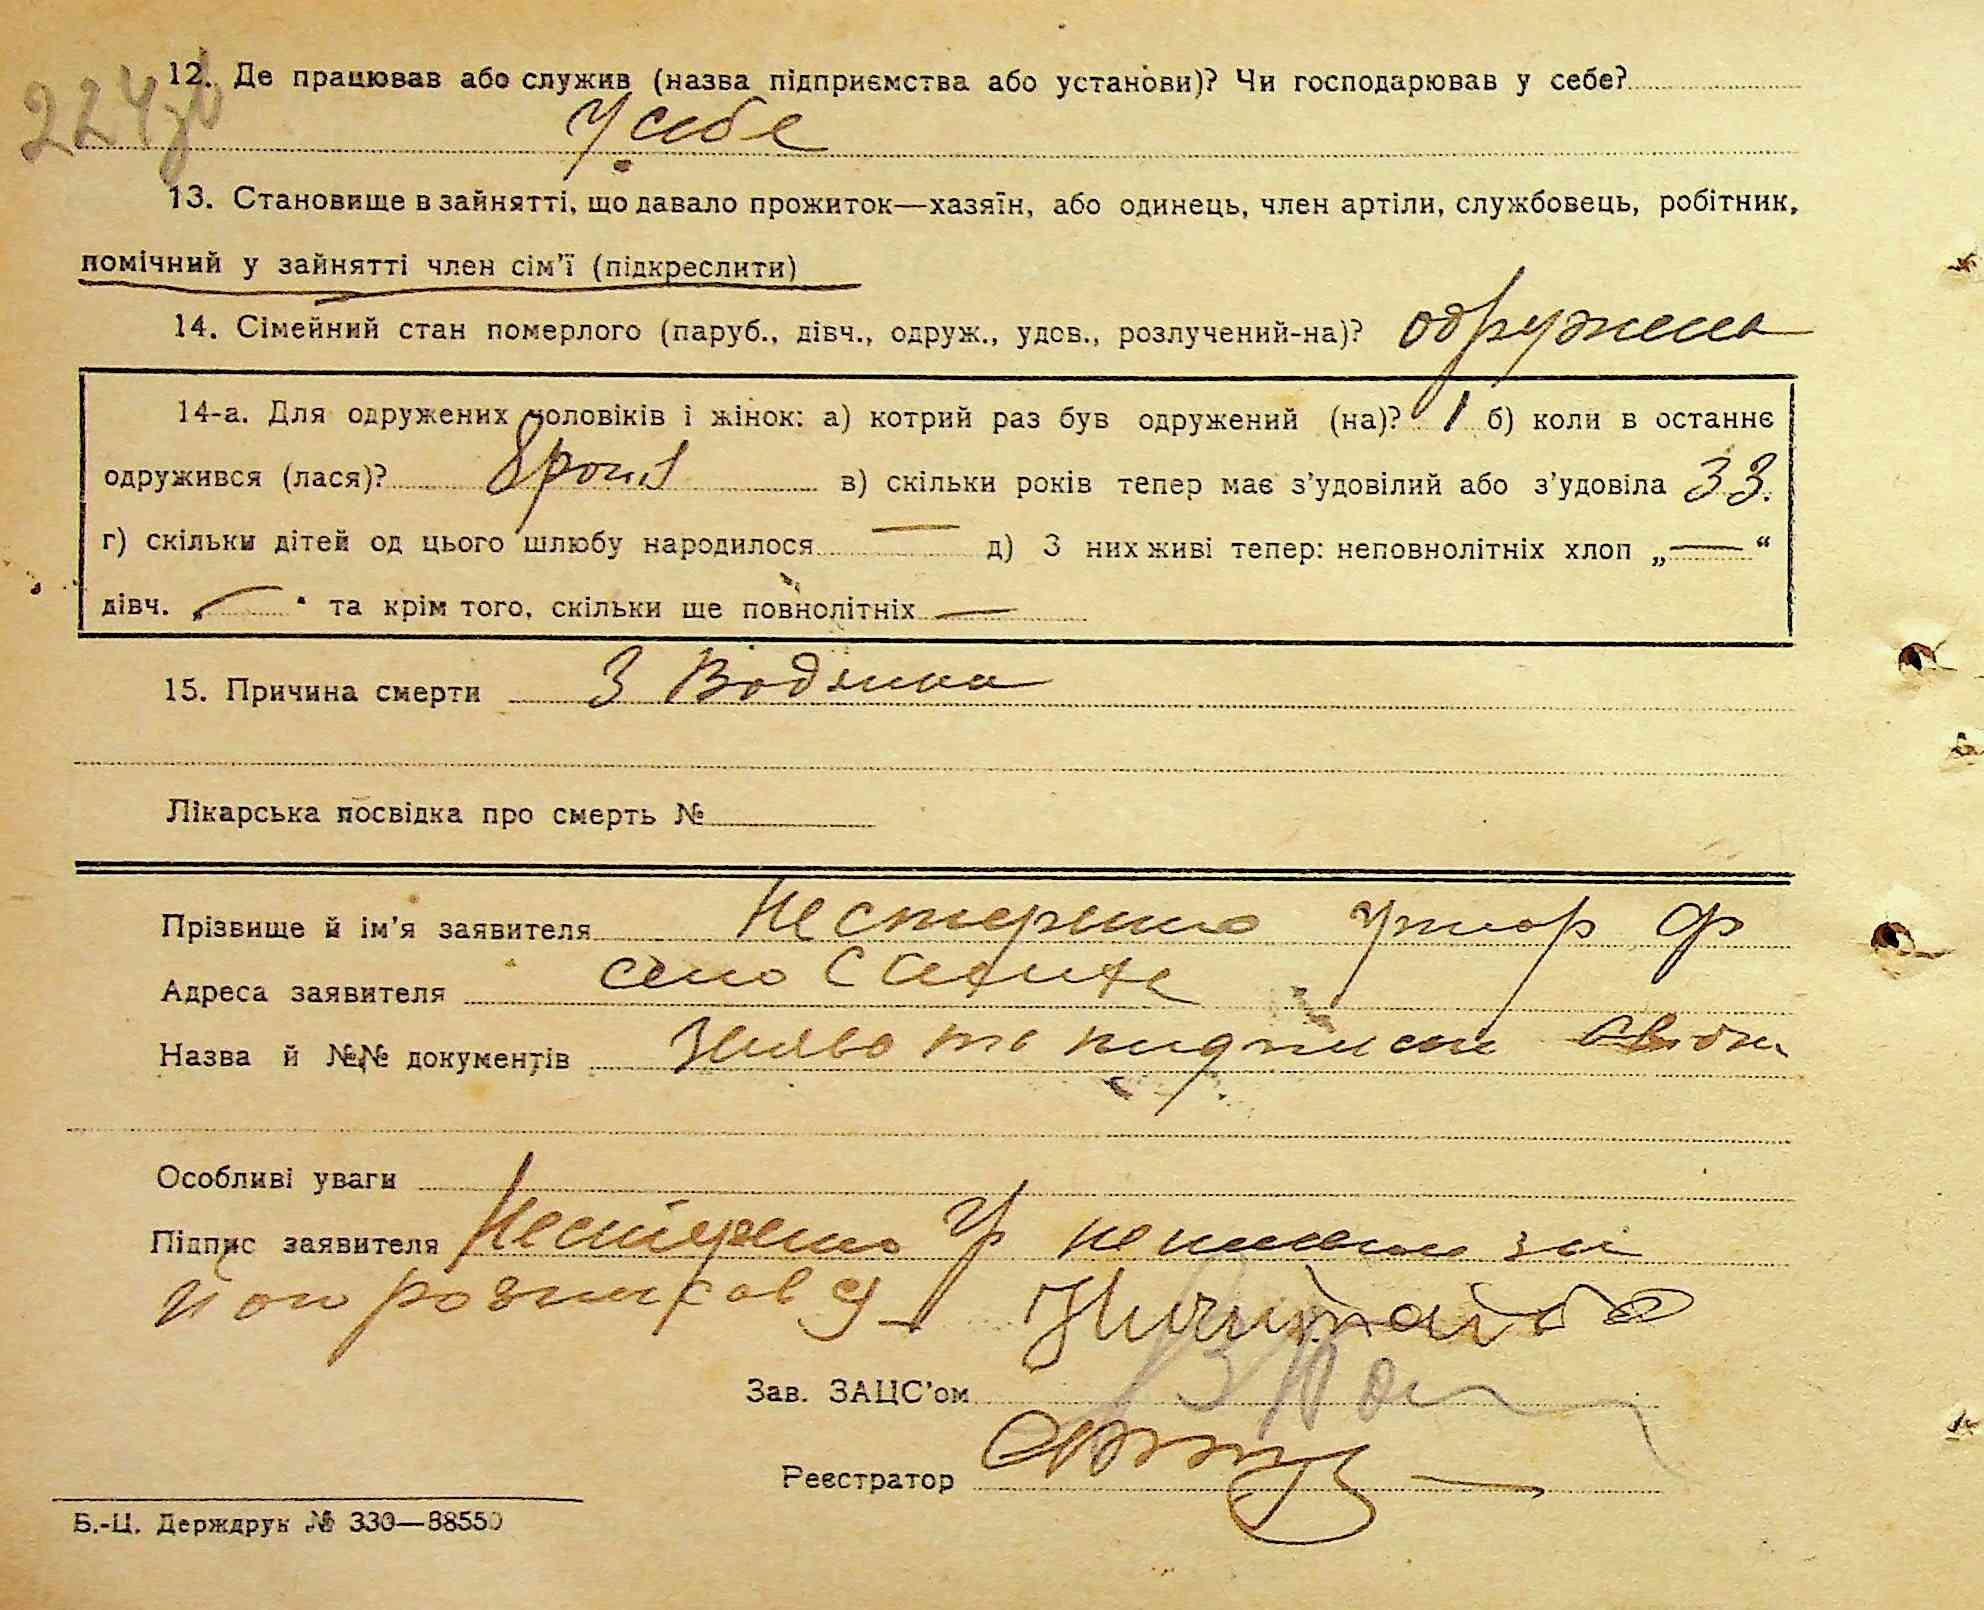 224зв
12. Де працював або служив (назва підприємства або установи)? Чи господарював у себе?
У себе
13. Становище в зайнятті, що давало прожиток—хазяїн, або одинець, член артіли, службовець, робітник,
помічний у зайнятті член сім'ї (підкреслити)
14. Сімейний стан померлого (паруб., дівч., одруж., удов., розлучений-на)? одружена
14-а. Для одружених чоловіків і жінок: а) котрий раз був одружений (на)? 1 б) коли в останнє
одружився (лася)? в) скільки років тепер має з'удовілий або з'удовіла 33.
г) скільки дітей од цього шлюбу народилося — д) З них живі тепер: неповнолітніх хлоп „—“
дівч. — " та крім того, скільки ще повнолітніх —
15. Причина смерти З Водянка
Лікарська посвідка про смерть №
Прізвище й ім'я заявителя Нестеренко Ф
Адреса заявителя село
Назва й №№ документів та
Особливі уваги
Підпис заявителя Нестеренко
його розписався
Зав. ЗАЦС'ом
Реєстратор
Б.-Ц. Держдрук № 330—88550